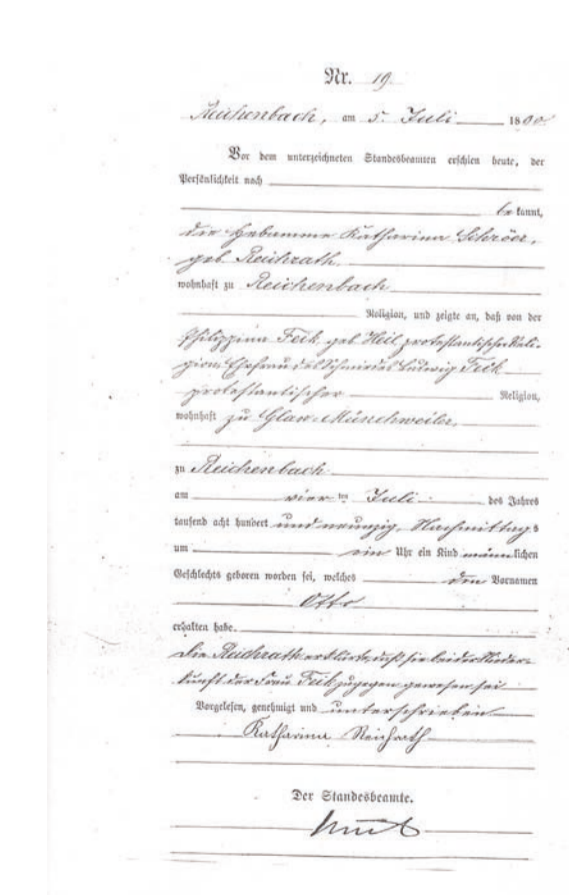 Nr. 19.
Reichenbach, am 5. Juli 1890.
Vor dem unterzeichneten Standesbeamten erschien heute, der
Persönlichkeit nach
bekannt,
die Hebamme Katharina Schröer,
geb. Reichrath
wohnhaft zu Reichenbach
Religion, und zeigte an, daß von der
Philippina Feik, geb. Heil protestantischer Reli-
gion, Ehefrau des Schmiedes Ludwig Feik
protestantischer Religion,
wohnhaft zu Glan-Münchweiler,
zu Reichenbach
am vier ten Juli des Jahres
tausend acht hundert und neunzig Nachmittags
um ein Uhr ein Kind männlichen
Geschlechts geboren worden sei, welches den Vornamen
Otto
erhalten habe.
Die Reichrath erklärte, daß sie bei der Nieder-
kunft der Frau Feik zugegen gewesen sei
Vorgelesen, genehmigt und unterschrieben
Katharina Reichrath
Der Standesbeamte.